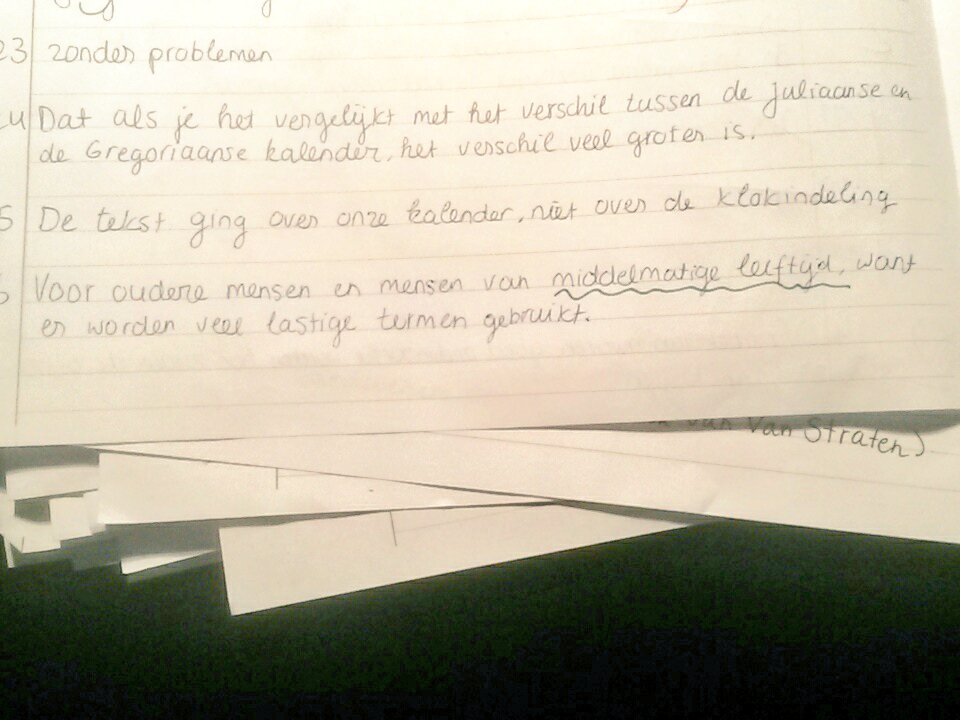 23 zonder problemen
24 Dat als je het vergelijkt met het verschil tussen de juliaanse en
de Gregoriaanse kalender, het verschil veel groter is.
5 De tekst ging over onze kalender, niet over de klokindeling
Voor oudere mensen en mensen van middelmatige leeftijd, want
er worden veel lastige termen gebruikt.
van Van Straten)